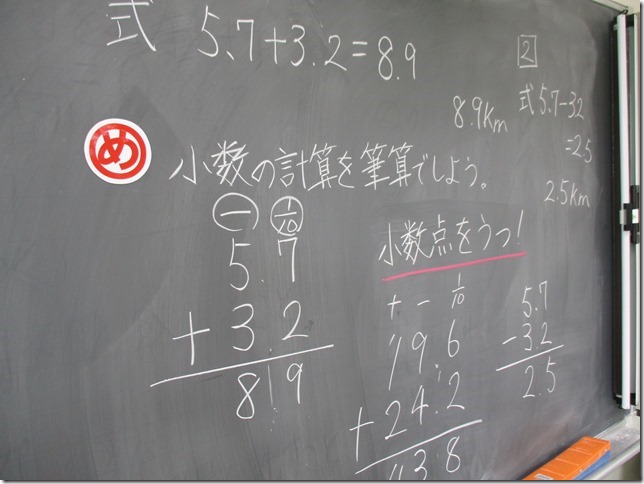 式 5.7+3.2=8.9
8.9km
め
小数の計算を筆算でしよう。
一 1/10
5.7
+3.2
8.9
2
式 5.7-3.2
=2.5
2.5km
小数点をうつ!
十 一 1/10
19.6
+24.2
43.8
5.7
-3.2
2.5